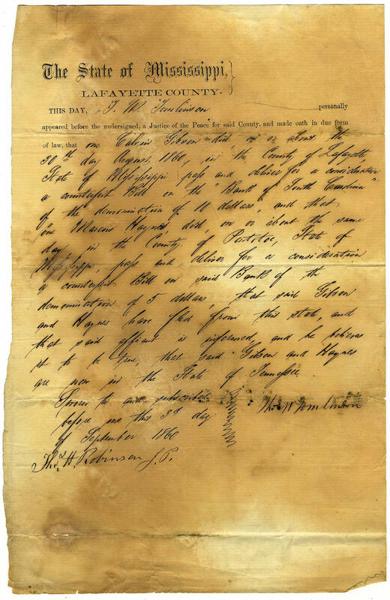 The State of Mississippi,
LAFAYETTE COUNTY.
THIS DAY, T. W. Tomlinson personally
appeared before the undersigned, a Justice of the Peace for said County, and made oath in due form
of law, that one Calvin Gibson did on or about the
30th day August, 1860, in the County of Lafayette
State of Mississippi pass and deliver for a consideration
a counterfeit Bill on the "Bank of South Carolina"
of the denomination of 10 dollars, and that
one Marion Haynes, did, on or about the same
day in the County of Pontotoc, State of
Mississippi, pass and deliver for a consideration
a counterfeit Bill on said Bank of the
denomination of 5 dollars, that said Gibson
and Haynes have fled from this state, and
that said affiant is informed, and he believes
it to be true, that said Gibson and Haynes
are now in the State of Tennessee.
Sworn to and subscribed
before me this 3rd day
of September 1860
Thos. H. Robinson J. P.
Thos W Tomlinson